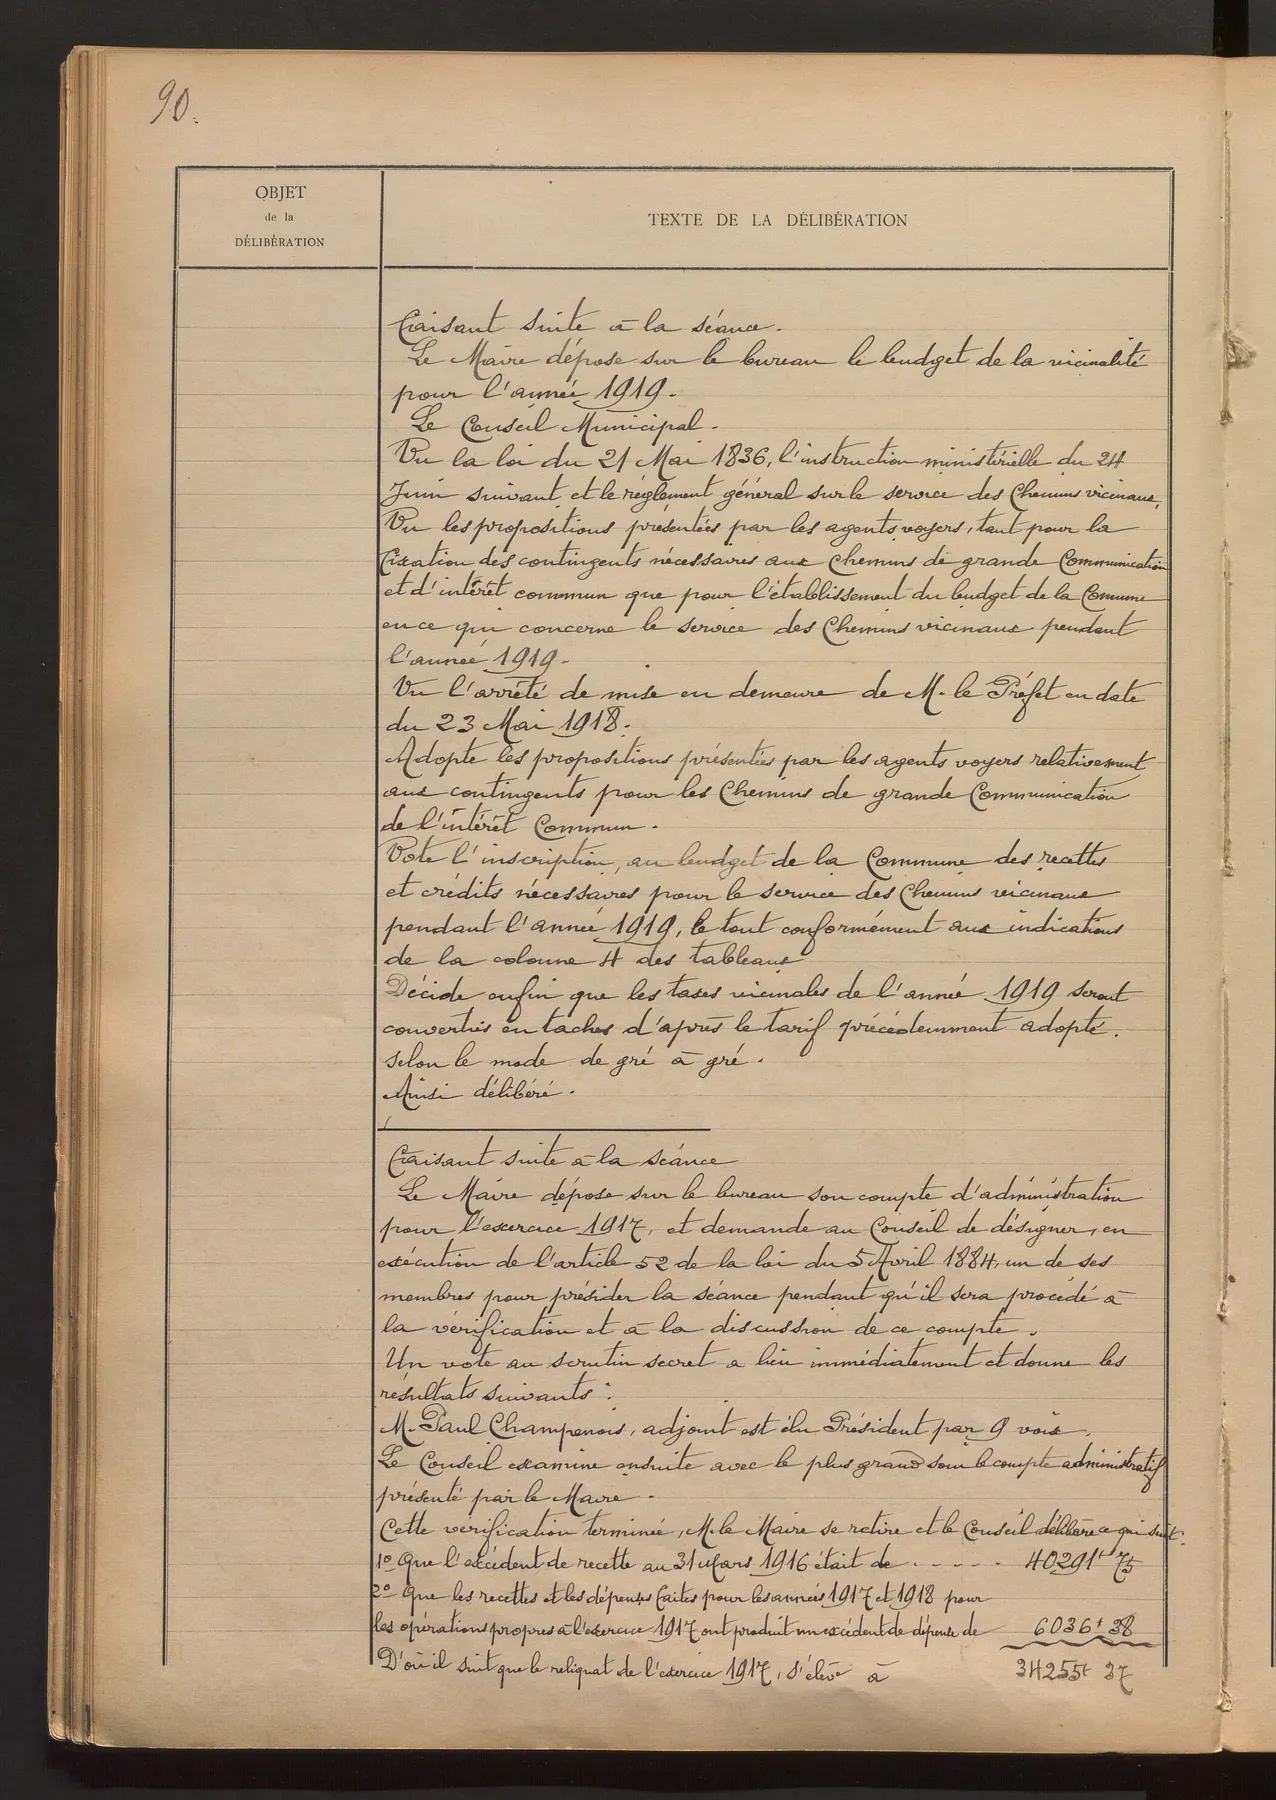 90.
OBJET
de la
DÉLIBÉRATION
TEXTE DE LA DÉLIBÉRATION
Faisant suite à la séance.
Le Maire dépose sur le bureau le budget de la vicinalité
pour l'année 1919.
Le Conseil Municipal.
Vu la loi du 21 Mai 1836, l'instruction ministérielle du 24
Juin suivant et le règlement général sur le service des Chemins vicinaux,
Vu les propositions présentées par les agents voyers, tant pour la
fixation des contingents nécessaires aux Chemins de grande Communication
et d'intérêt commun que pour l'établissement du budget de la Commune
en ce qui concerne le service des Chemins vicinaux pendant
l'année 1919.
Vu l'arrêté de mise en demeure de M. le Préfet en date
du 23 Mai 1918.
Adopte les propositions présentées par les agents voyers relativement
aux contingents pour les Chemins de grande Communication
de l'intérêt Commun.
Vote l'inscription, au budget de la Commune des recettes
et crédits nécessaires pour le service des Chemins vicinaux
pendant l'année 1919, le tout conformément aux indications
de la colonne 4 des tableaux
Décide enfin que les taxes vicinales de l'année 1919 seront
converties en taches d'après le tarif précédemment adopté.
selon le mode de gré à gré.
Ainsi délibéré.
Faisant suite à la séance
Le Maire dépose sur le bureau son compte d'administration
pour l'exercice 1917, et demande au Conseil de désigner, en
exécution de l'article 52 de la loi du 5 Avril 1884, un de ses
membres pour présider la séance pendant qu'il sera procédé à
la vérification et à la discussion de ce compte.
Un vote au scrutin secret a lieu immédiatement et donne les
résultats suivants :
M. Paul Champenois, adjoint est élu Président par 9 voix.
Le Conseil examine ensuite avec le plus grand soin le compte administratif
présenté par le Maire.
Cette vérification terminée, M. le Maire se retire et le Conseil délibère ce qui suit :
1º Que l'excédent de recette au 31 Mars 1916 était de - - - - - 40291f 75
2º Que les recettes et les dépenses faites pour les années 1917 et 1918 pour
les opérations propres à l'exercice 1917 ont produit un excédent de dépense de 6036f 38
D'où il suit que le reliquat de l'exercice 1917, s'élève à 34255f 37